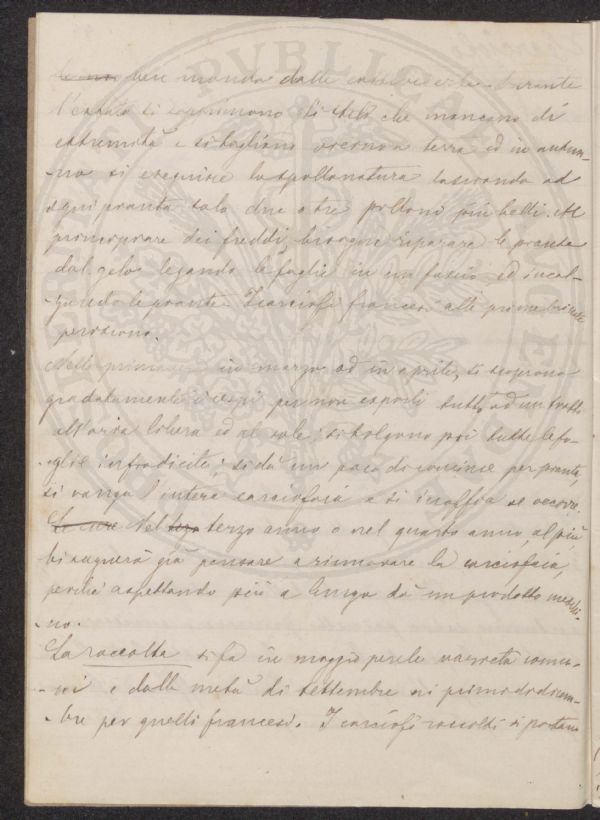 ben monda dalle Durante
l'estate si sopprimono gli steli che mancano di
estremità e si tagliano vicino a terra ed in autun-
-no si eseguisce la spollonatura lasciando ad
ogni pianta solo due o tre polloni più belli. Al
principiare dei freddi, bisogna riparare le piante
dal gelo legando le foglie in un fascio ed incal-
zando le piante. I carciofi francesi alle prime brinate
periscono.
Nella primavera in marzo od in aprile, si scoprono
gradatamente i cespi per non esporli tutto ad un tratto
all'aria libera ed al sole; si tolgono poi tutte le fo-
-glie infradicite; si dà un poco di concime per pianta,
si vanga l'intera carciofaia e si inaffia se occorre.
Le cure Nel terzo terzo anno o nel quarto anno, al più
bisognerà già pensare a rinnovare la carciofaia,
perché aspettando più a lungo dà un prodotto meschi-
-no.
La raccolta si fa in maggio per le varietà comu-
-ni e dalla metà di settembre ai primi di dicem-
-bre per quelli francesi. I carciofi raccolti si portano